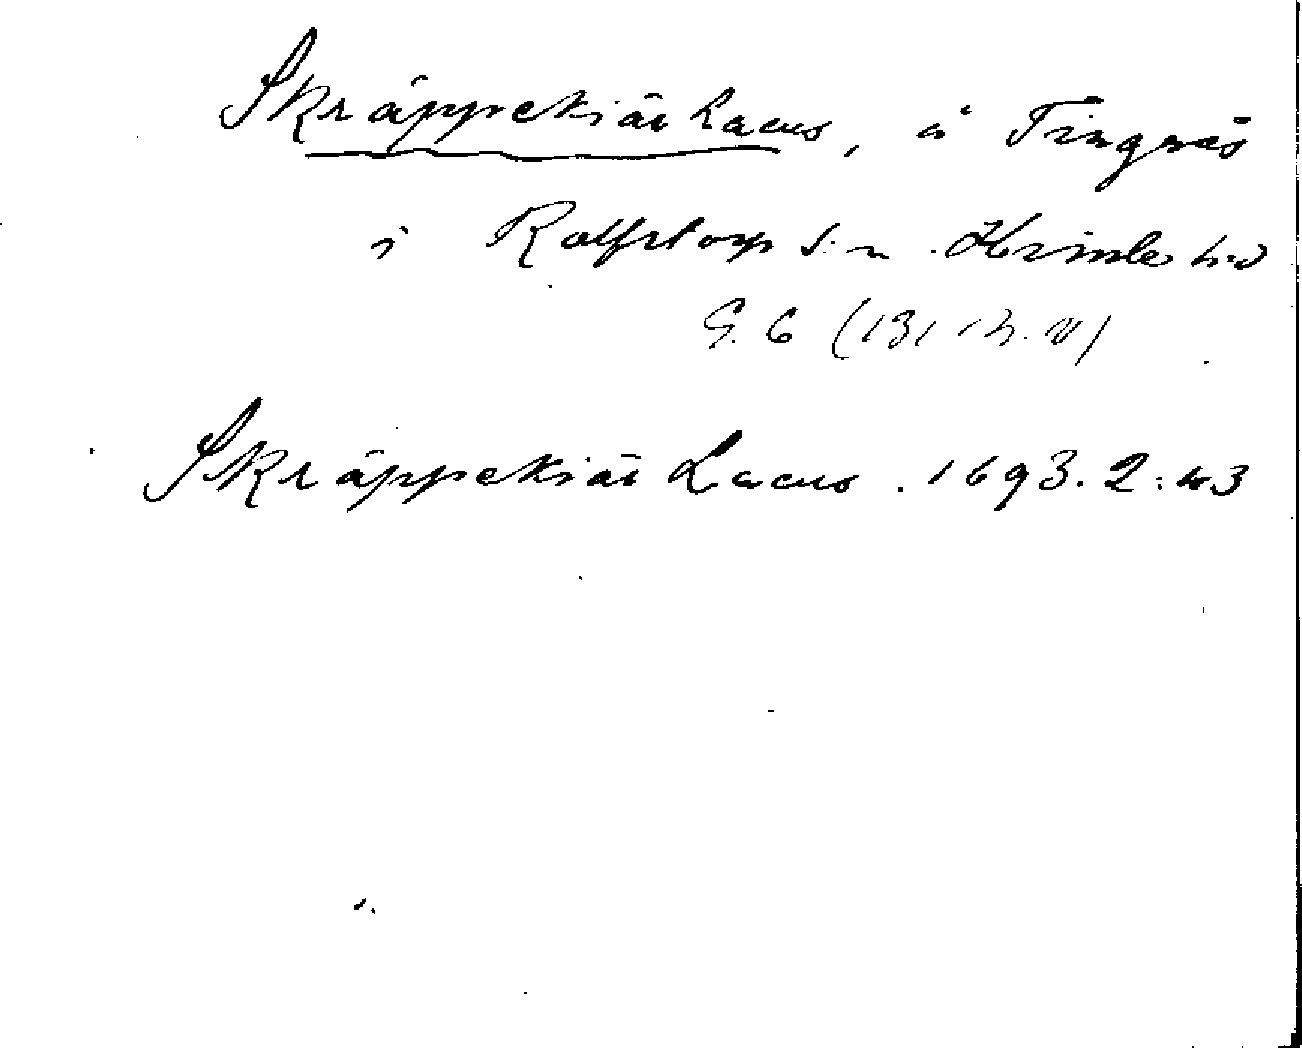 Skräppekiär Lacus, å Tingnäs
i Rolfstorp s:n Himle h:d
G. 6 (131
Skräppekiär Lacus. 1693. 2:43